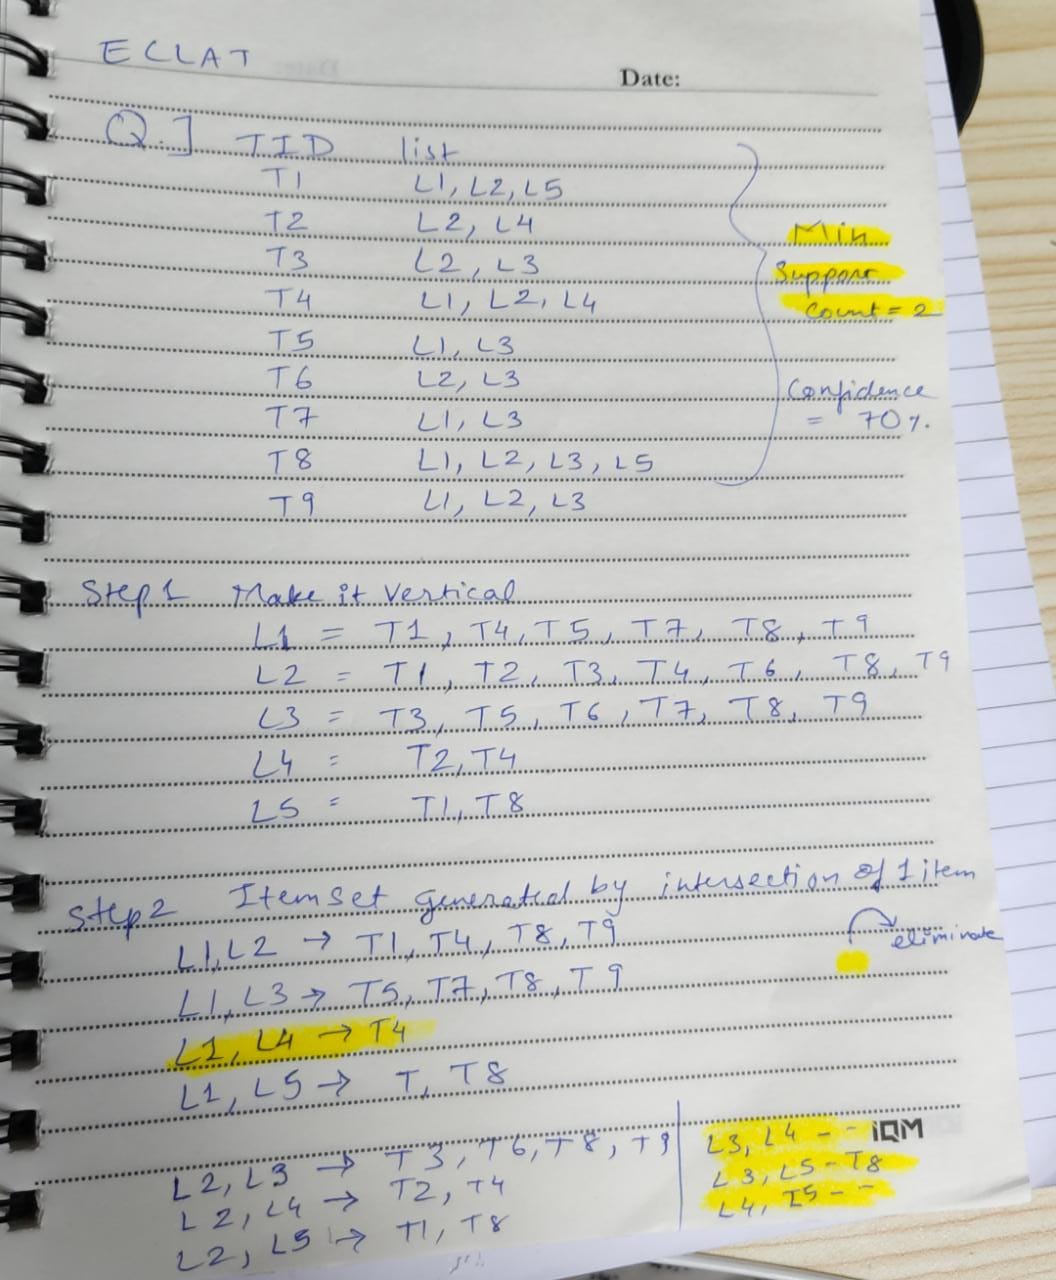 ECLAT
Date:
Q.] TID list
T1 L1, L2, L5
T2 L2, L4
T3 L2, L3
T4 L1, L2, L4
T5 L1, L3
T6 L2, L3
T7 L1, L3
T8 L1, L2, L3, L5
T9 L1, L2, L3
Min
Support
Count = 2
Confidence
= 70%.
Step 1 Make it Vertical
L1 = T1, T4, T5, T7, T8, T9
L2 = T1, T2, T3, T4, T6, T8, T9
L3 = T3, T5, T6, T7, T8, T9
L4 = T2, T4
L5 = T1, T8
Step 2 Itemset generated by intersection of 1 item
eliminate
L1, L2 → T1, T4, T8, T9
L1, L3 → T5, T7, T8, T9
L1, L4 → T4
L1, L5 → T, T8
L2, L3 → T3, T6, T8, T9
L2, L4 → T2, T4
L2, L5 → T1, T8
L3, L4 - -
L3, L5 - T8
L4, I5 - -
iQM